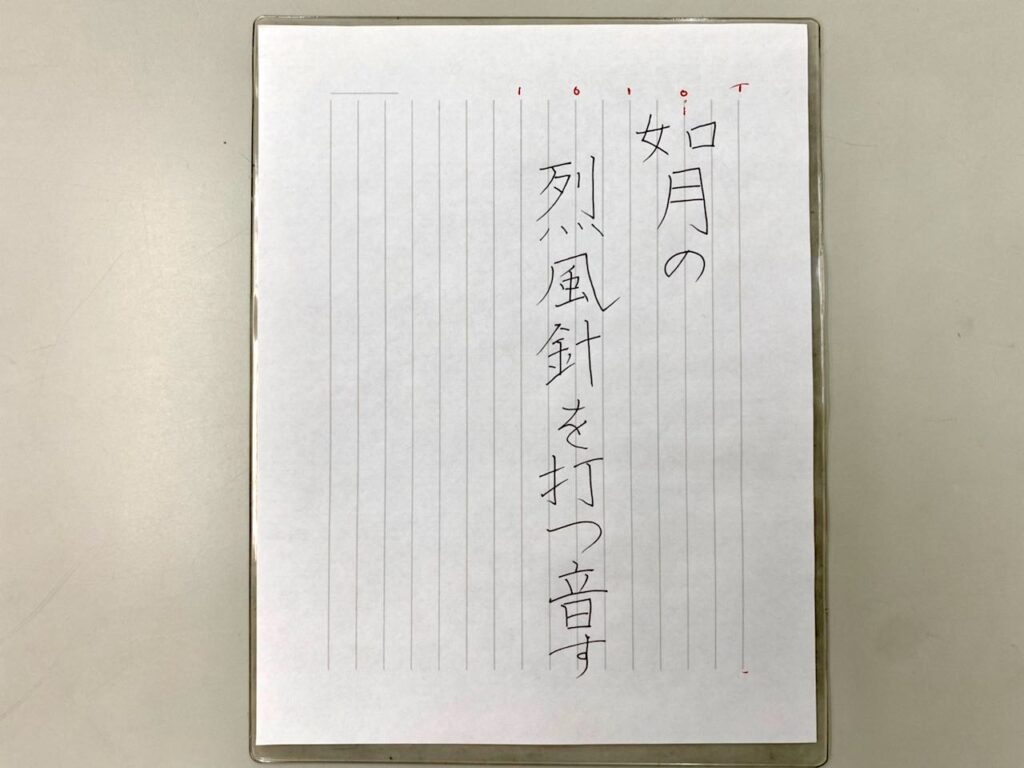 如月の
烈風針を打つ音す